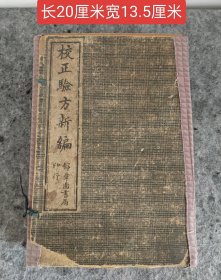 长20厘米宽13.5厘米
校正驗方新編
章圖書局
印行